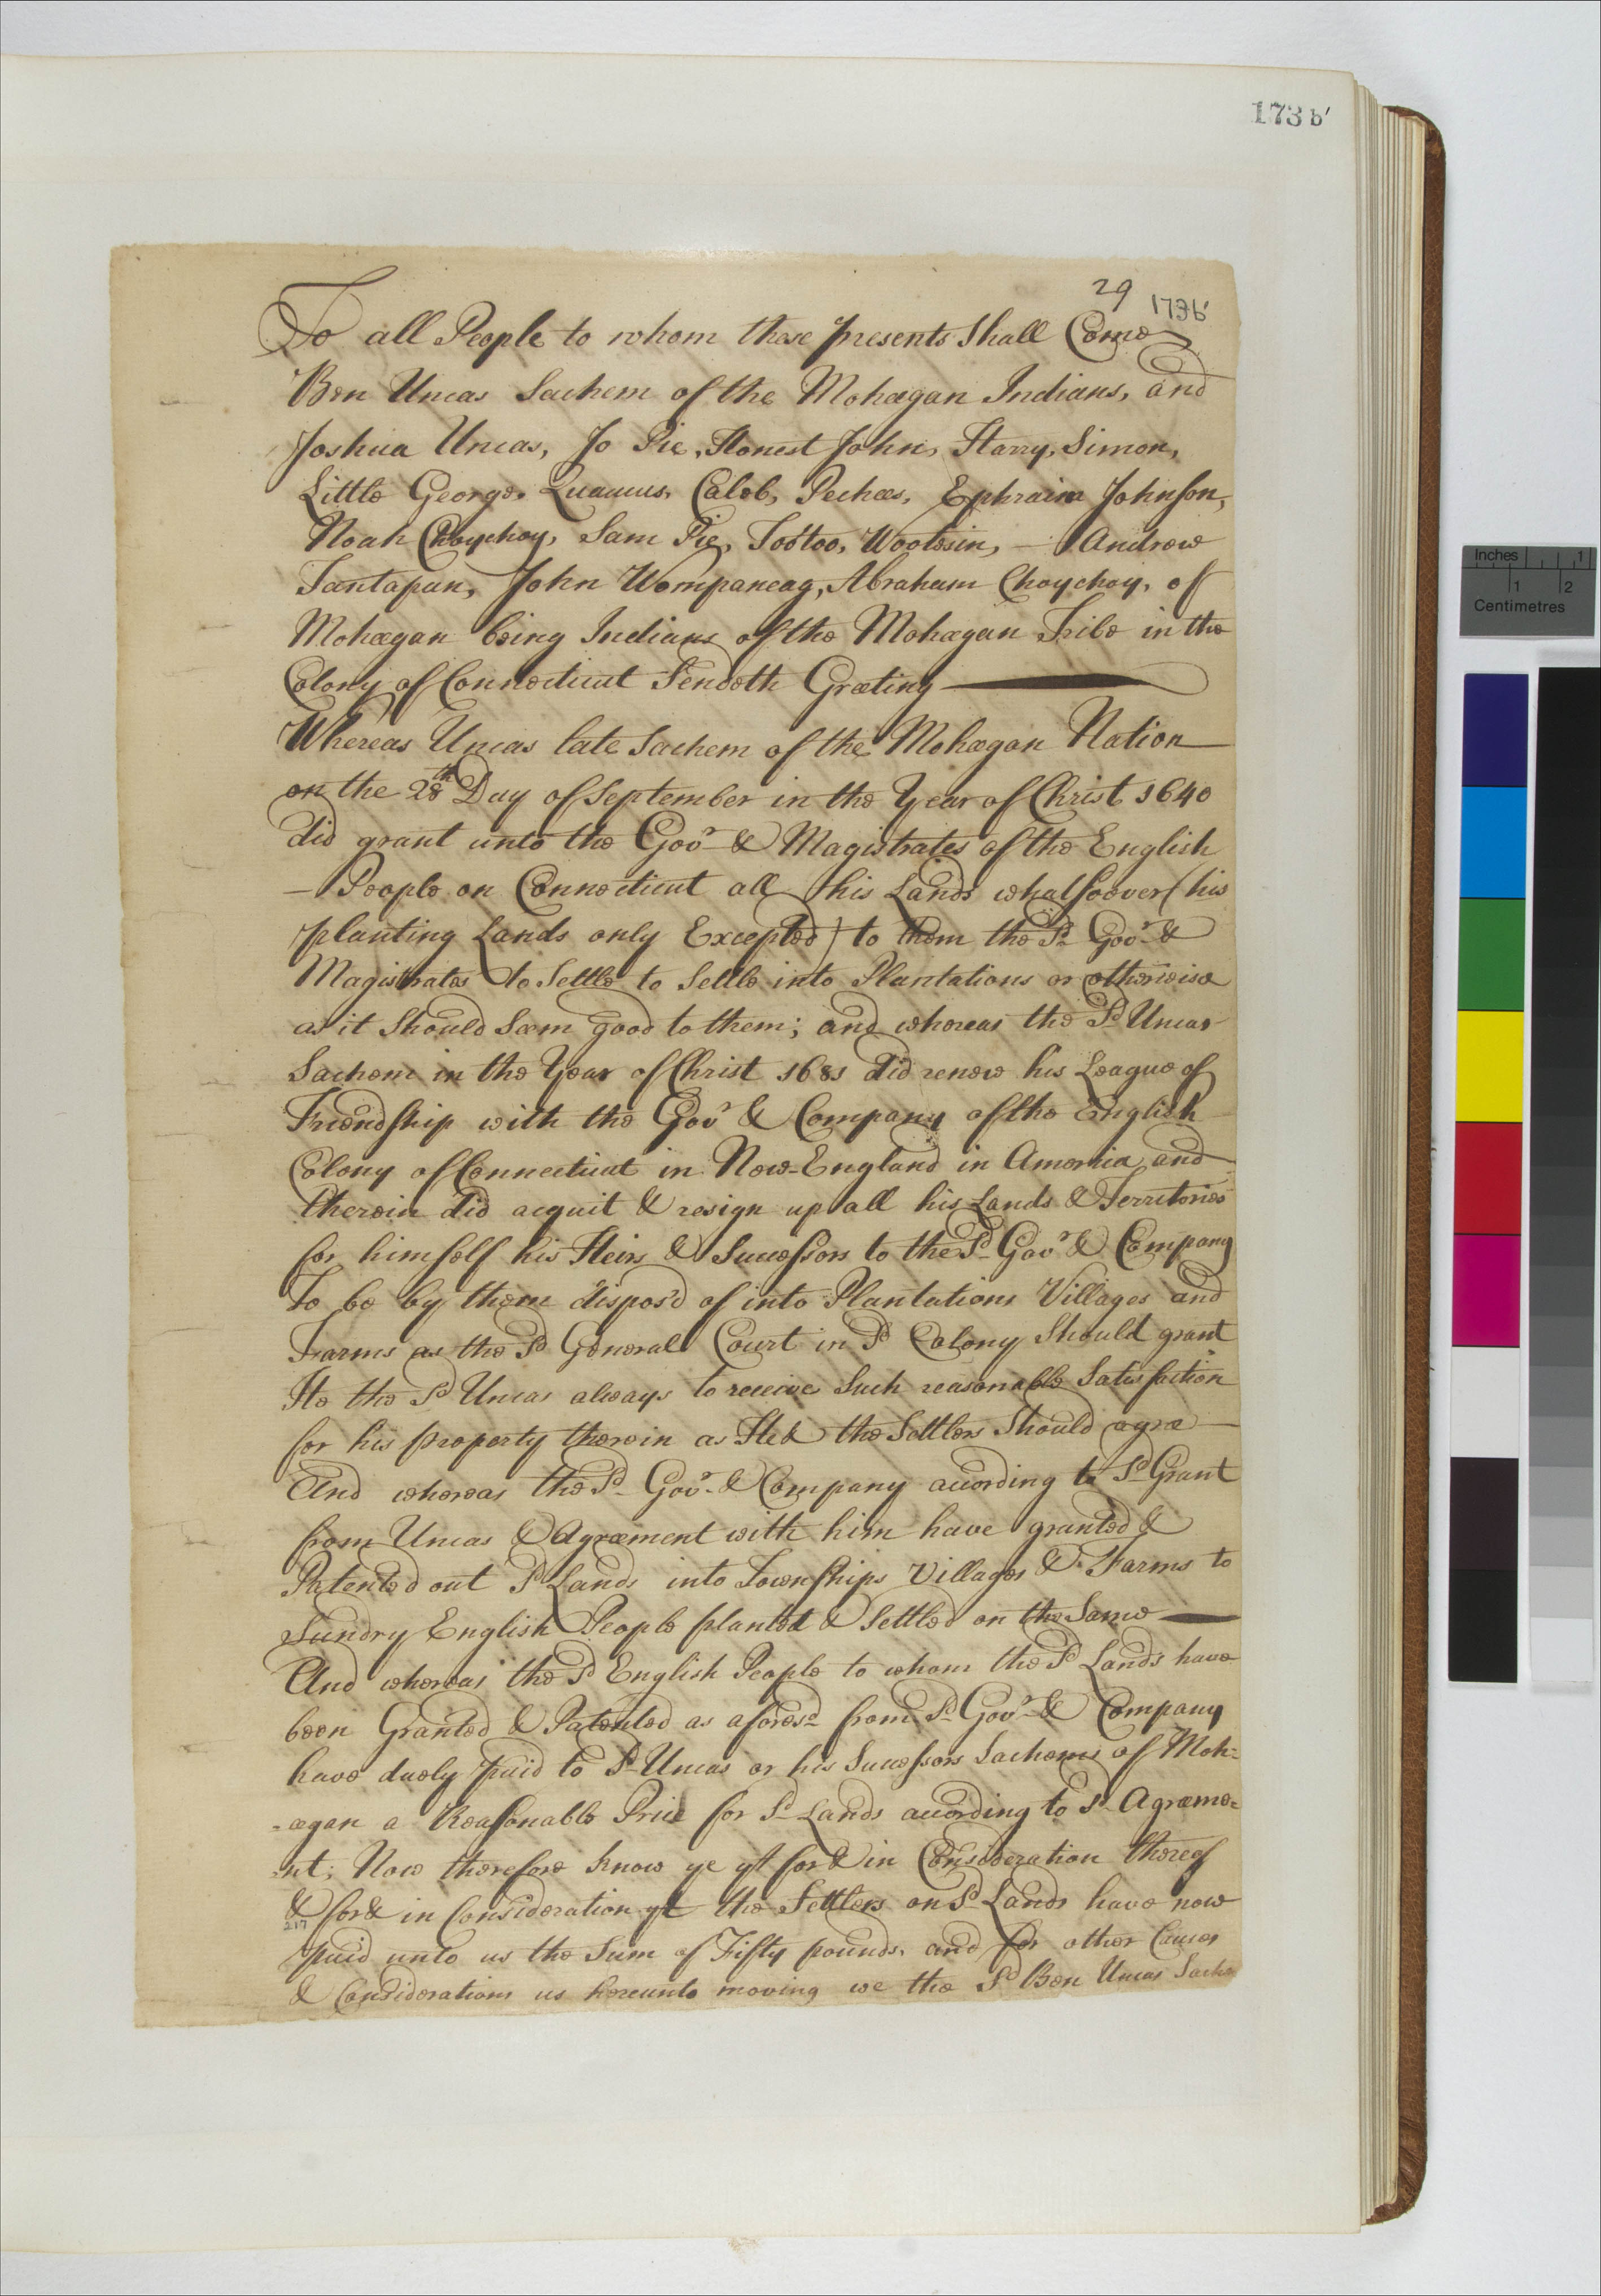 173 b'
29 173b'
To all People to whom these presents Shall Come
Ben Uncas Sachem of the Mohegan Indians, and
Joshua Uncas, Jo Pie, Honest John, Harry, Simon,
Little George, Quaucus, Caleb, Pechees, Ephraim Johnson,
Noah Choychoy, Sam Pie, Tootoo, Wootosin, — Andrew
Tantapan, John Wompaneag, Abraham Choychoy, of
Mohegan being Indians of the Mohegan Tribe in the
Colony of Connecticut Sendeth Greeting —
Whereas Uncas late Sachem of the Mohegan Nation
on the 28th Day of September in the Year of Christ 1640
did grant unto the Govr & Magistrates of the English
— People on Connecticut all his Lands whatsoever (his
planting Lands only Excepted) to them the Sd Govr &
Magistrates to Settle to Settle into Plantations or otherwise
as it Should Seem good to them; and whereas the Sd Uncas
Sachem in the Year of Christ 1681 did renew his League of
Friendship with the Govr & Company of the English
Colony of Connecticut in New-England in America and
therein did acquit & resign up all his Lands & Territories
for himself his Heirs & Successors to the Sd Govr & Company
To be by them dispos'd of into Plantations Villages and
Farms as the Sd General Court in Sd Colony Should grant
He the Sd Uncas always to receive Such reasonable Satisfaction
for his property therein as He & the Settlers Should agree —
And whereas the Sd Govr & Company according to Sd Grant
from Uncas & Agreement with him have granted &
Patented out Sd Lands into Townships Villages & Farms to
Sundry English People planted & Settled on the Same —
And whereas the Sd English People to whom the Sd Lands have
been Granted & Patented as aforesd from Sd Govr & Company
have duely paid to Sd Uncas or his Successors Sachems of Moh=
=egan a Reasonable Price for Sd Lands according to Sd Agreeme=
=nt; Now therefore know ye yt for & in Consideration thereof
& for & in Consideration yt the Settlers on Sd Lands have now
217
paid unto us the Sum of Fifty pounds, and for other Causes
& Considerations us hereunto moving we the Sd Ben Uncas Sachem
Inches 1
1 2
Centimetres